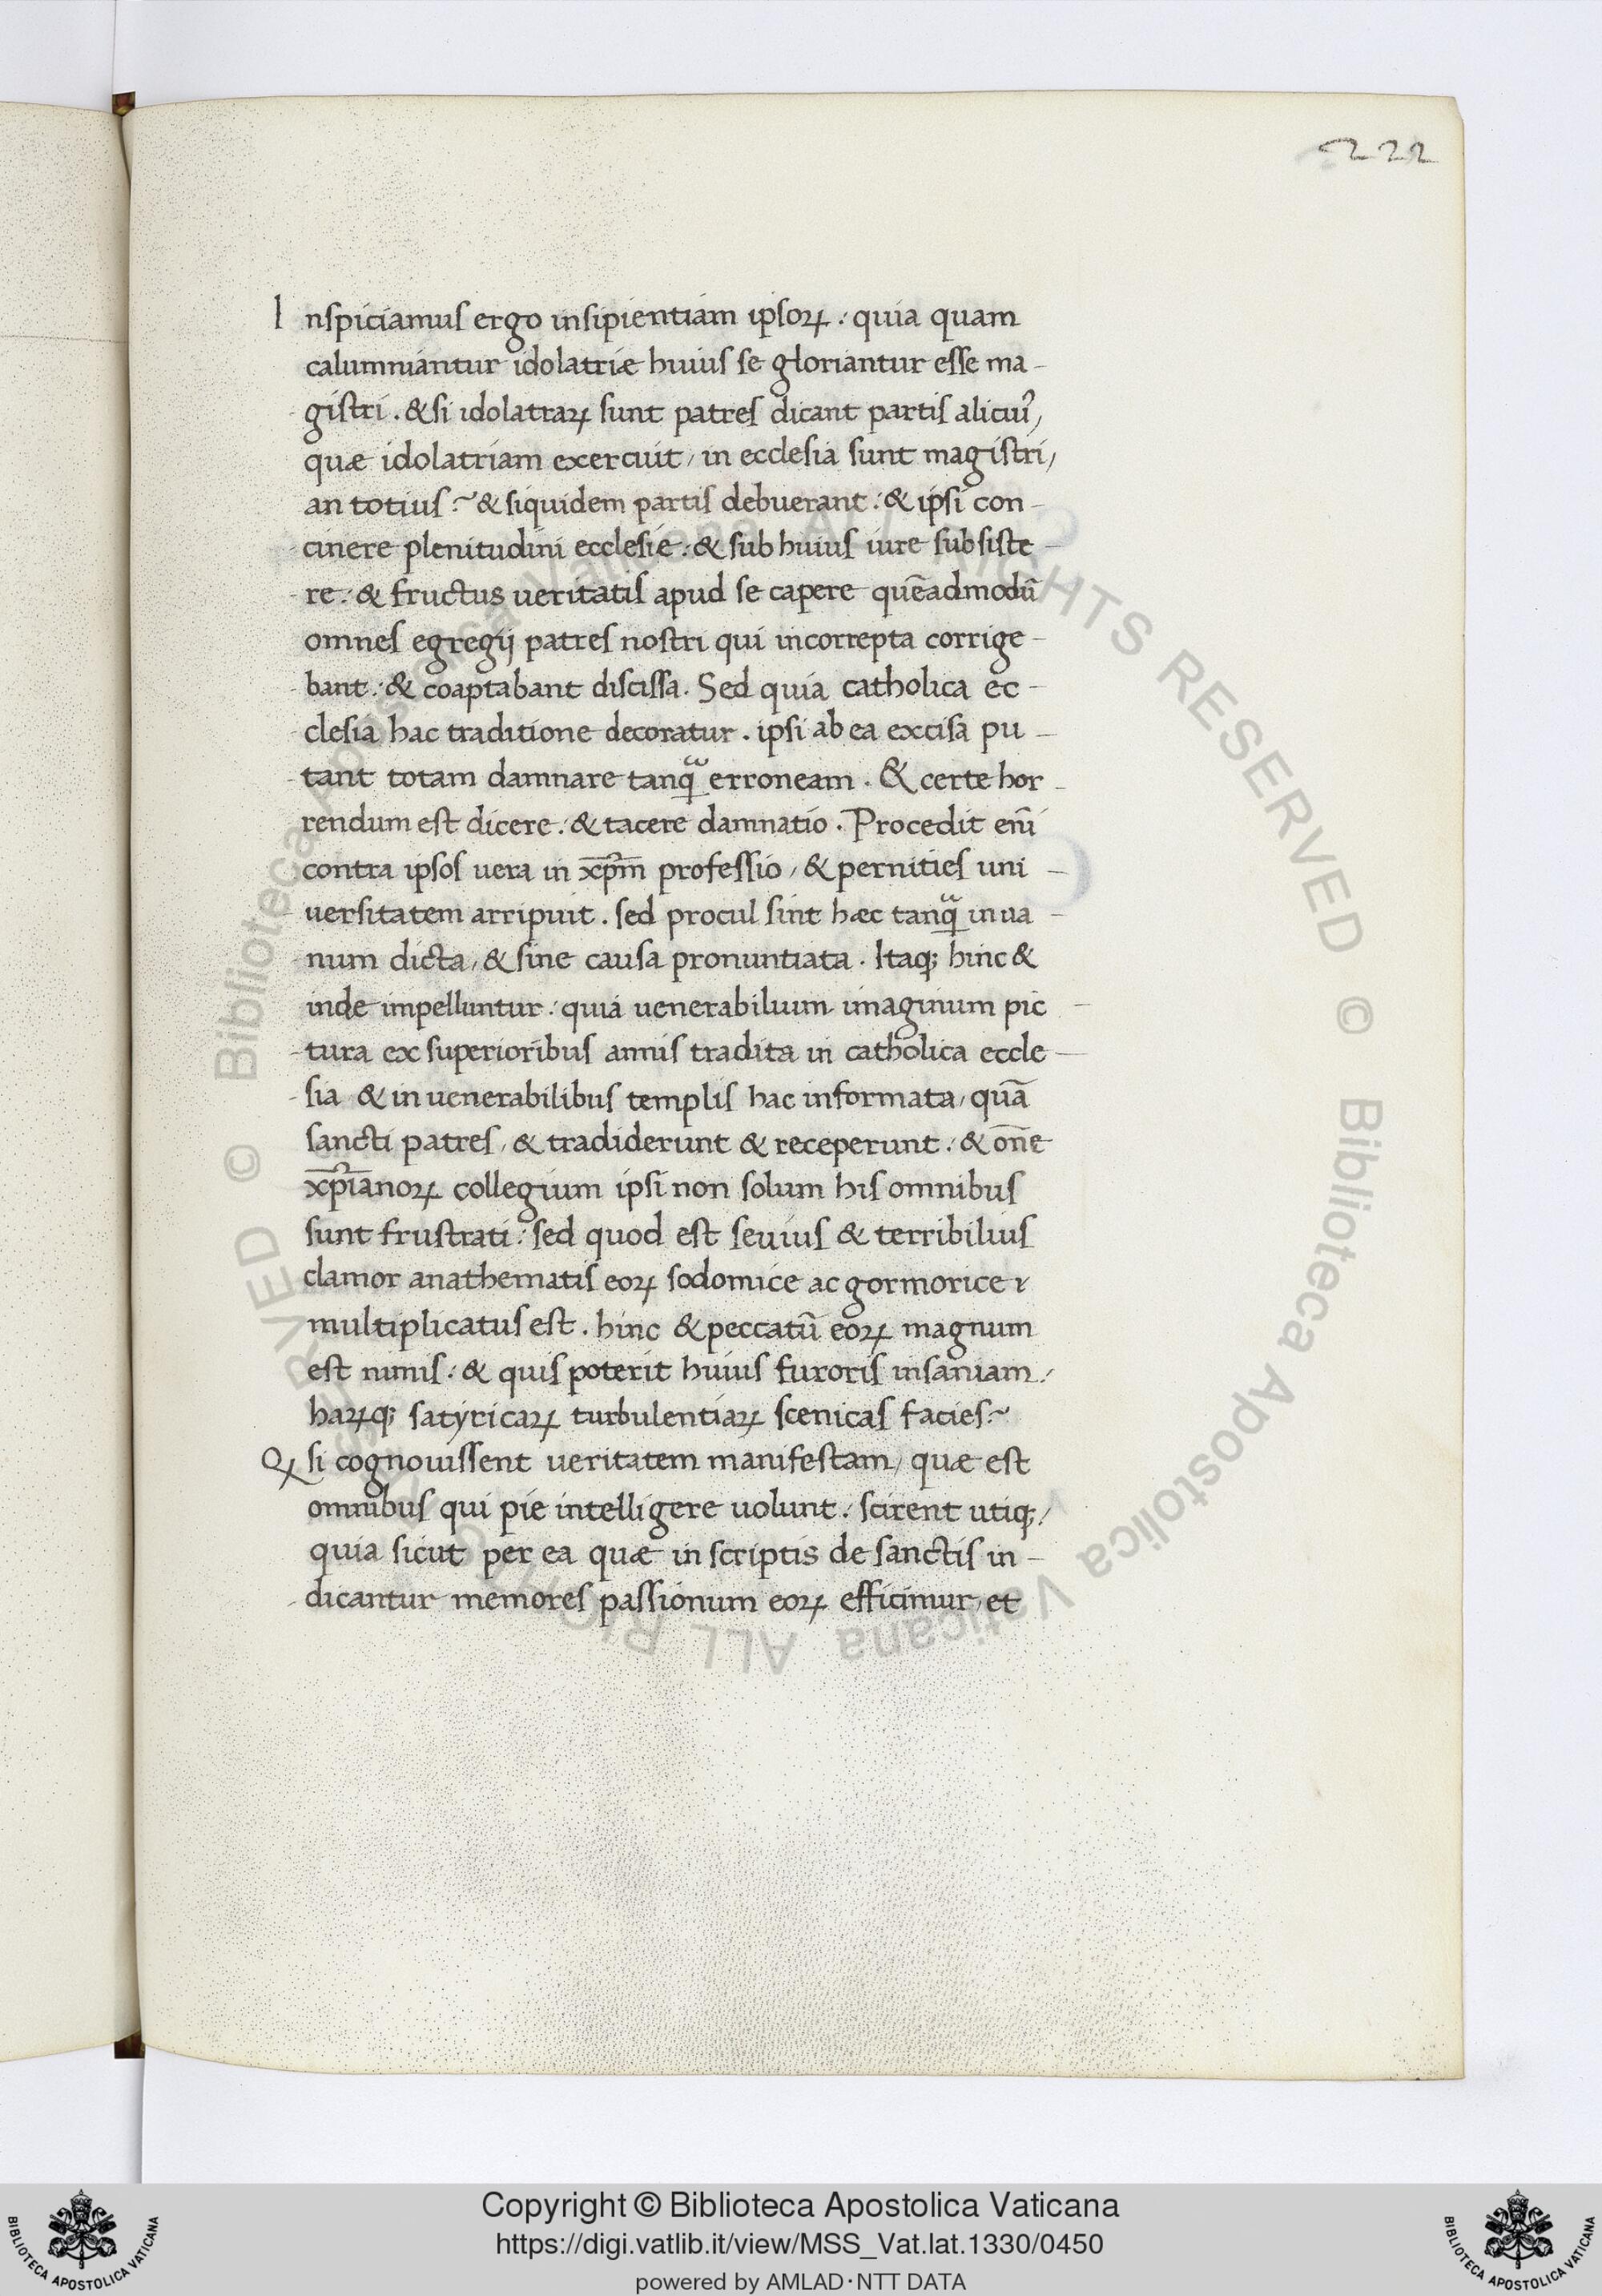 222
Inspiciamus ergo insipientiam ipsoꝝ: quia quam
calumniantur idolatriæ huius se gloriantur esse ma-
gistri. & si idolatraꝝ sunt patres dicant partis alicuiꝰ,
quæ idolatriam exercuit, in ecclesia sunt magistri,
an totius? & siquidem partis debuerant: & ipsi con-
cinere plenitudini ecclesie: & sub huius iure subsiste-
re: & fructus ueritatis apud se capere quēadmodū
omnes egregij patres nostri qui incorrepta corrige-
bant: & coaptabant discissa. Sed quia catholica ec-
clesia hac traditione decoratur. ipsi ab ea excisa pu-
tant totam damnare tanqᷓ erroneam. & certe hor-
rendum est dicere: & tacere damnatio. Procedit eni̅
contra ipsos uera in xp̅m professio, & pernities uni-
uersitatem arripuit. sed procul sint hæc tanqᷓ in ua-
num dicta, & sine causa pronuntiata. Itaq; hinc &
inde impelluntur: quia uenerabilium imaginum pic-
tura ex superioribus annis tradita in catholica eccle-
sia & in uenerabilibus templis hac informata, quā
sancti patres, & tradiderunt & receperunt: & on̅e
xp̅ianoꝝ collegium ipsi non solum his omnibus
sunt frustrati: sed quod est seuius & terribilius
clamor anathematis eoꝝ sodomice ac gormorice
multiplicatus est. hinc & peccatū eoꝝ magnum
est nimis: & quis poterit huius furoris insaniam:
haꝝq; satyricaꝝ turbulentiaꝝ scenicas facies?
Qꝝ si cognouissent ueritatem manifestam, quæ est
omnibus qui pie intelligere uolunt: scirent utiq;:
quia sicut per ea quæ in scriptis de sanctis in-
dicantur memores passionum eoꝝ efficimur, et
© Biblioteca Apostolica Vaticana ALL RIGHTS RESERVED
© Biblioteca Apostolica Vaticana ALL RIGHTS RESERVED
BIBLIOTECA APOSTOLICA VATICANA
Copyright © Biblioteca Apostolica Vaticana
https://digi.vatlib.it/view/MSS_Vat.lat.1330/0450
powered by AMLAD·NTT DATA
BIBLIOTECA APOSTOLICA VATICANA